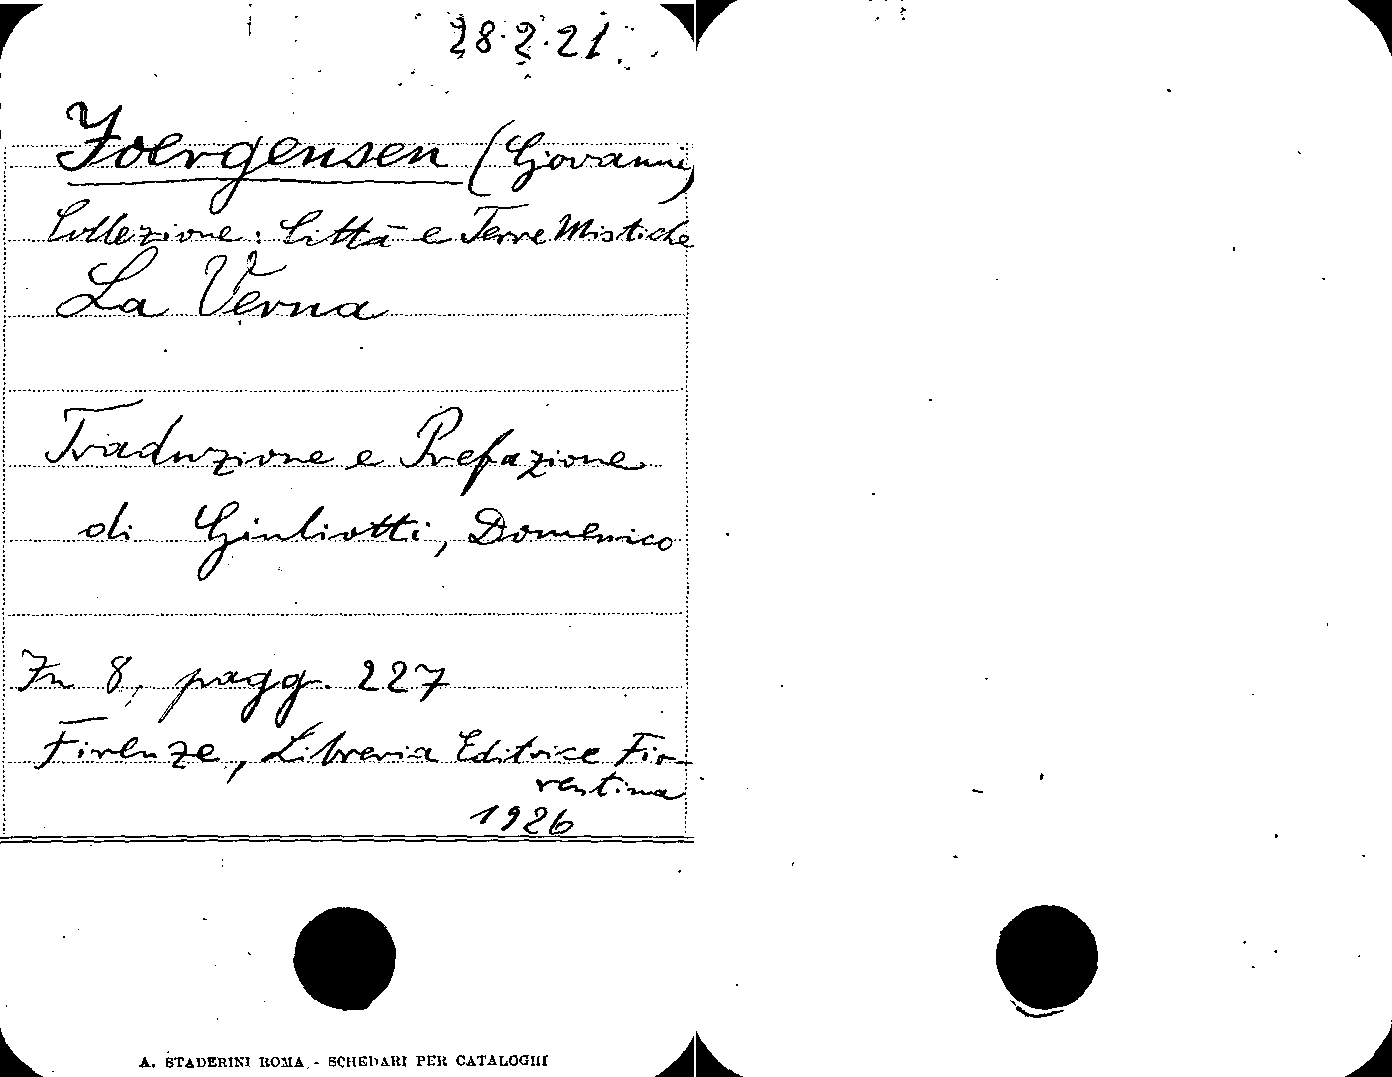 28.2.21.
Joergensen (Giovanni)
Collezione: Città e Terre Mistiche
La Verna
Traduzione e Prefazione
di Giuliotti, Domenico
In 8, pagg. 227
Firenze, Libreria Editrice Fio-
rentina
1926
A. STADERINI ROMA - SCHEDARI PER CATALOGHI